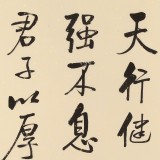 天行健
强不息
君子以厚